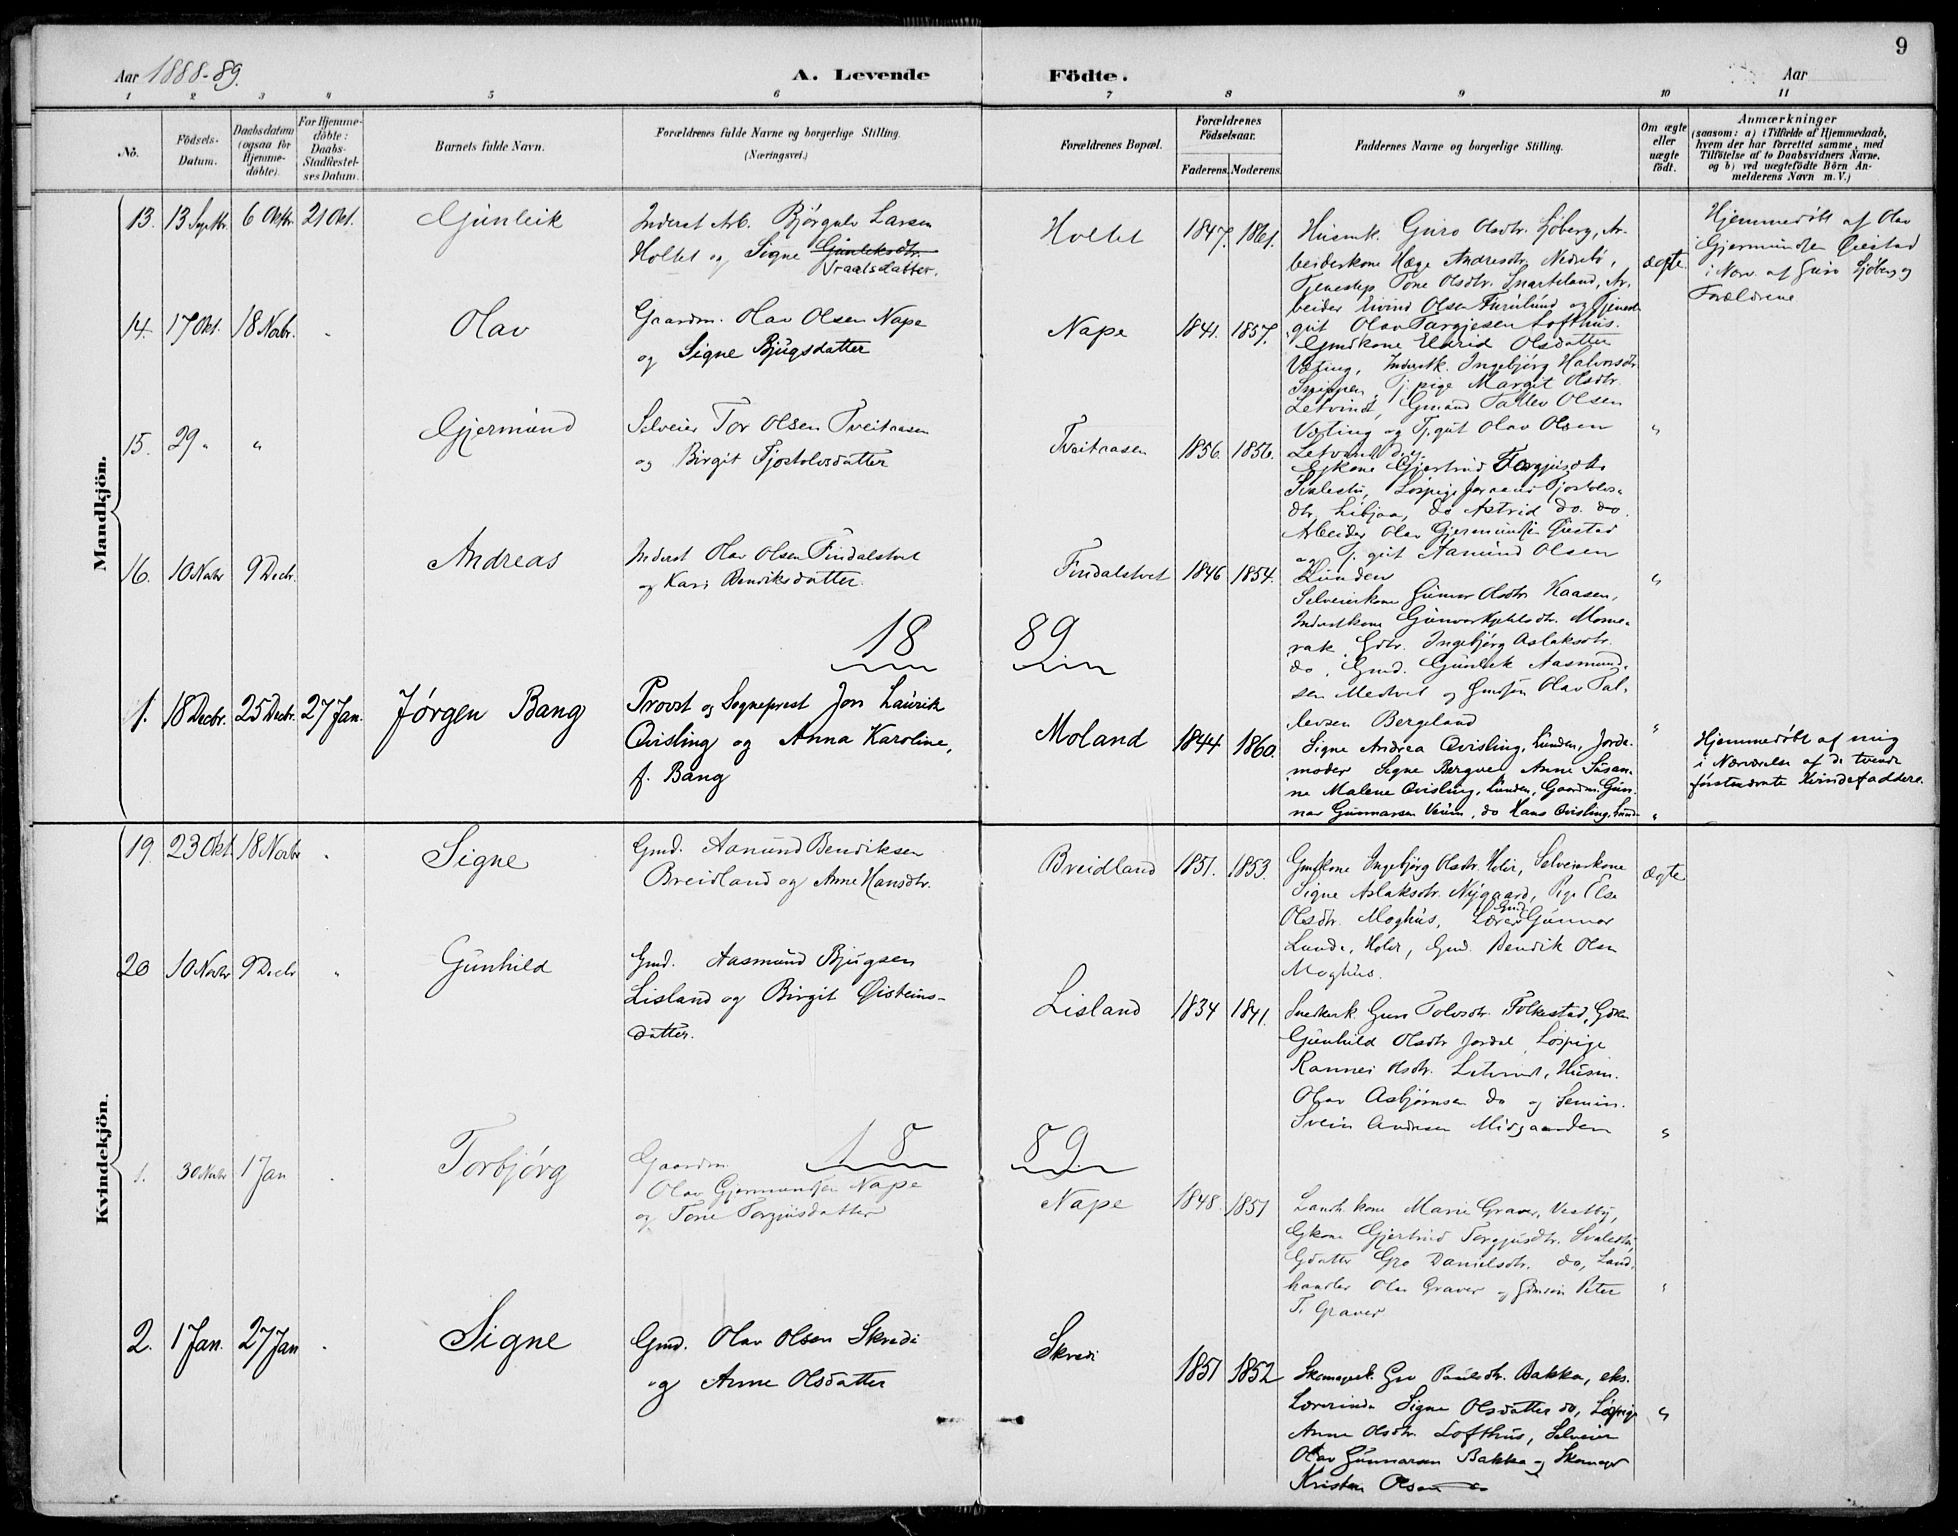 9
Aar 1888-89.
A. Levende Födte.
Aar
1 2 3 4 5 6 7 8 9 10 11
No.
Födsels-Datum.
Daabsdatum (ogsaa for Hjemmedöbte).
For Hjemmedöbte: Daabs-Stadfæstelses Datum.
Barnets fulde Navn.
Forældrenes fulde Navne og borgerlige Stilling.
(Næringsvei.)
Forældrenes Bopæl.
Forældrenes Födselsaar.
Faderens. Moderens.
Faddernes Navne og borgerlige Stilling.
Om ægte eller uægte födt.
Anmærkninger
(saasom: a) i Tilfælde af Hjemmedaab,
hvem der har forrettet samme, med
Tilföielse af to Daabsvidners Navne,
og b) ved uægtefödte Börn An-
melderens Navn m. V.)
Mandkjön.
13. 13 Septbr. 6 Oktbr. 21 Okt. Gunleik
Inderst Arb. Bjørgulv Larsen
Holtet og Signe Gunleiksdtr.
Vraalsdatter.
Holtet 1847. 1861.
Husmk. Guro Olsdtr. Sjøberg, Ar-
beiderkone Hæge Andresdtr. Nedrebø,
Tjenestep. Tone Olsdtr. Snarteland, Ar-
beider Eivind Olsen Furulund og Tjenest-
gut Olav Targjesen Lofthus.
ægte
Hjemmedøbt af Olav
Gjermundsen Øiestad
i Nærv. af Guro Sjøberg og
Forældrene
14. 17 Okt. 18 Novbr. Olav
Gaardm. Olav Olsen Nape
og Signe Bjugsdatter
Nape 1841. 1857.
Gmdkone Eldrid Olsdatter
Væting, Inderstk. Ingebjørg Halvorsdtr
Tj. pige Margit Olsdtr.
Letvindt, Gmand Tallev Olsen
Væting og Tj.gut Olav Olsen
Letvindt
"
15. 29 " " Gjermund
Selveier Tor Olsen Tveitaasen
og Birgit Tjostolvsdatter
Tveitaasen 1856. 1856.
Gjkone Gjertrud Torgjusdtr.
Svalestu, Løspige Joraand Tjostolvs-
dtr. Libjaa, do Astrid do. do.
Arbeider Olav Gjermundsen Øiestad
og Tj. gut Aamund Olsen
Lunden
16. 10 Novbr 9 Decbr. Andreas
Inderst Olav Olsen Findalstvet
og Kari Bendiksdatter.
Findalstvet 1846 1854.
"
Selveierkone Gunvor Olsdtr Kaasen,
Inderstkone Gunvor Kjetilsdtr. Mome-
rak, Gdtr. Ingebjørg Aslaksdtr.
do, Gmd. Gunleik Aasmund-
sen Medtvet og Gmdsøn Olav Tal-
levsen Bergeland
18 89
1. 18 Decbr. 25 Decbr. 27 Jan. Jørgen Bang
Provst og Sogneprest Jon Laurik
Qvisling og Anna Karoline,
f. Bang
Moland 1844 1860.
Signe Andrea Qvisling, Lunden, Jorde-
moder Signe Bergve Anne Susan-
ne Malene Qvisling, Lunden, Gaardm. Gun-
nar Gunnarsen Veum, do Hans Qvisling, Lund
"
Hjemmedøbt af mig
i Nærværelse af de tvende
førstnævnte Kvindefaddere.
Kvindekjön.
19. 23 Okt. 18 Novbr Signe
Gmd. Aanund Bendiksen
Breidland og Anne Hansdtr.
Breidland 1851. 1853.
Gmdkone Ingebjørg Olsdtr. Holir, Selveierkone
Signe Aslaksdtr. Nygaard, Pige Else
Olsdtr. Moghus, Gmd. Gunnar
Lunde, Holir, Gmd. Bendik Olsen
Moghus.
ægte
20 10 Novbr 9 Decbr " Gunhild
Gmd. Aasmund Bjugsen
Lisland og Birgit Øisteins-
datter.
Lisland 1834 1841.
Snedkerk. Guro Tolvsdtr. Folkestad,
Gunhild Olsdtr Jordal, Løspige
Rannei Olsdtr. Letvindt, Husm.
Olav Asbjørnsen do og Semin.
Svein Andresen Midgaarden
"
18 89
1. 30 Novbr 1 Jan Torbjørg
Gaardm.
Olav Gjermundsen Nape
og Tone Torgjusdatter
Nape 1848. 1851
Landh.kone Marie Graver, Vestby,
Gkone Gjertrud Torgjusdtr. Svalestu,
Gdatter Gro Danielsdtr. do, Land-
handler Olav Graver og Gmsøn Peter
T. Graver
"
2. 1 Jan. 27 Jan Signe
Gmd. Olav Olsen Skredi
og Anne Olsdatter
Skredi 1851 1852
Skomagerk. Gro Paulsdtr. Bakka, eks.
Lærerinde Signe Olsdatter do, Løspige
Anne Olsdtr. Lofthus, Selveier
Olav Gunnarsen Bakka og Skomager
Kristen Olsen do
"